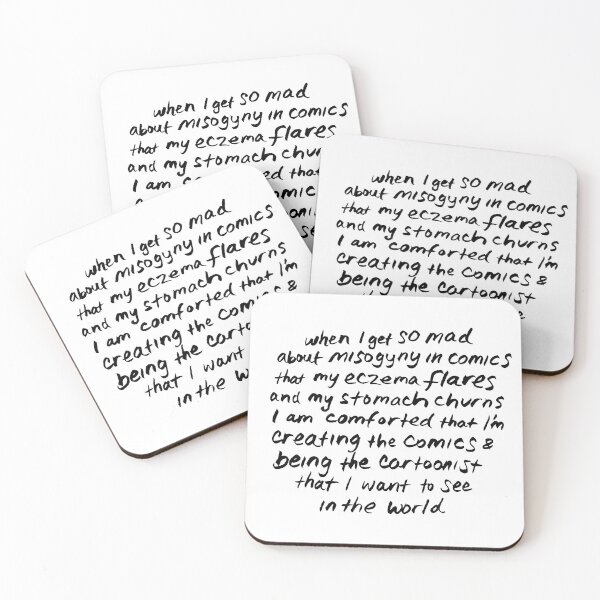 when I get SO mad
about misogyny in comics
that my eczema flares
and my stomach churns
I am comforted that
see
when I get SO mad
about misogyny in comics
that my eczema flares
and my stomach churns
I am comforted that I'm
creating the comics &
being the cartoonist
when I get SO mad
about misogyny in comics
that my eczema flares
and my stomach churns
I am comforted that I'm
creating the comics &
being the
that I want
in the
when I get SO mad
about misogyny in comics
that my eczema flares
and my stomach churns
I am comforted that I'm
creating the comics &
being the cartoonist
that I want to see
in the world